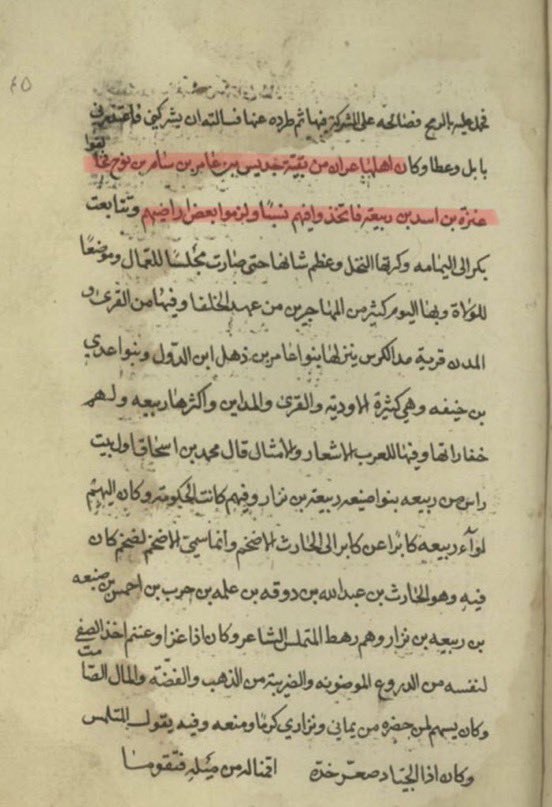 ٤٥
عليه بالرمح فصالحه على الشركة فيها ثم طرده عنها فسالته ان يشركني
بابل وعطا وكان اهلها من بقية جديس بن عامر بن سام بن نوح فحا لفوا
عنزة بن اسد بن ربيعة فاتخذوا فيهم نسبا ولزموا بعض اراضيهم وتتابعت
بكر الى اليمامه وكربها النخل وعظم شانها حتى صارت مجلسا للعمال وموضعا
للولاة وبها اليوم كثير من المهاجرين من عهد الخلفا وفيها من القرى و
المدن قرية ينزلها بنوا عامر بن ذهل ابن الدول وبنوا عدي
بن حنيفه وهي كثيرة الاودية والقرى والمداين واكثرها ربيعه ولهم
خفاراتها وفيها للعرب الاشعار والامثال قال محمد بن اسحاق اول بيت
راس من ربيعه بنوا ضبيعه ربيعة بن نزار وفيهم كانت الحكومة وكان اليهم
لوآء ربيعه كابرا عن كابر الى الحارث الاضخم وانما سمي الاضخم لضخم كان
فيه وهو الحارث بن عبد الله بن دوقه بن عله بن حرب بن احمس بن ضبيعه
بن ربيعه بن نزار وهم رهط المتملس الشاعر وكان اذا غزا وغنم اخذ الصفي
لنفسه من الدروع الموضونه والضربية من الذهب والفضة والمال الصامت
وكان يسهم لمن حضره من يماني ونزاري كرما ومنعه وفيه يقول المتلمس
وكان اذا الجبار صعر خده اقمنا له من ميله فتقوما